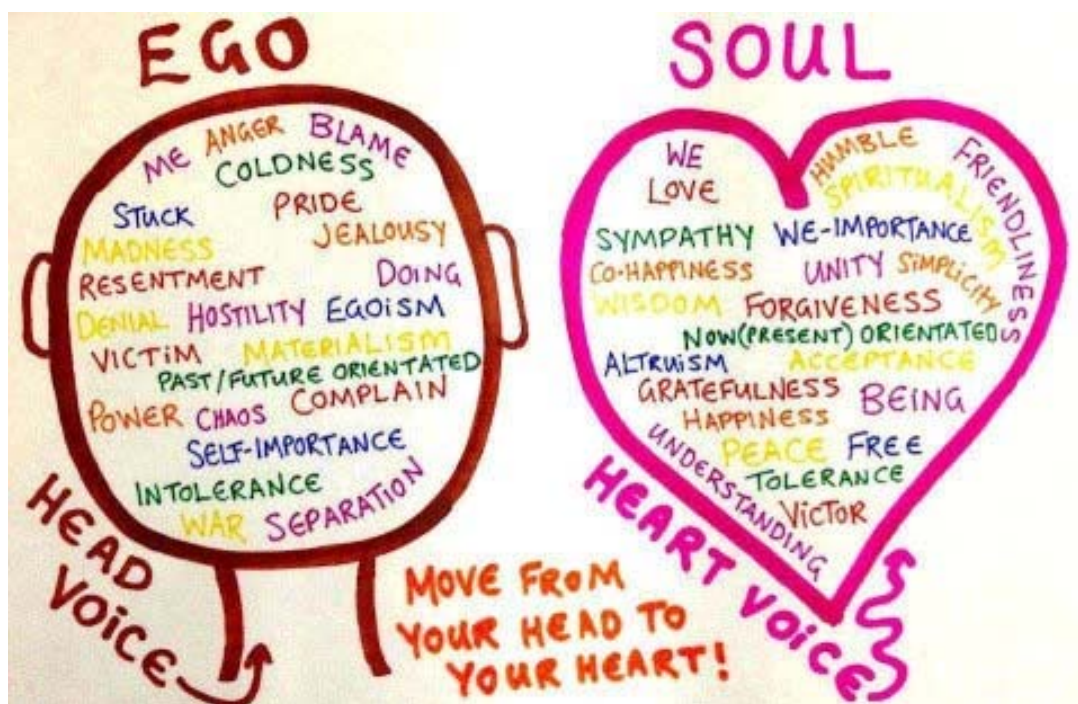 EGO
ME ANGER BLAME
COLDNESS
STUCK PRIDE
MADNESS JEALOUSY
RESENTMENT DOING
DENIAL HOSTILITY EGOiSM
ViCTiM MATERIALISM
PAST/FUTURE ORIENTATED
POWER CHAOS COMPLAIN
SELF-IMPORTANCE
INTOLERANCE
WAR SEPARATION
HEAD
VOiCE
MOVE FROM
YOUR HEAD TO
YOUR HEART!
SOUL
WE HUMBLE FRIENDLINESS
LOVE SPIRITUALISM
SYMPATHY WE-IMPORTANCE
CO-HAPPINESS UNITY SiMPLiCiTY
WISDOM FORGIVENESS
NOW(PRESENT) ORIENTATED
ALTRUiSM ACCEPTANCE
GRATEFULNESS BEING
HAPPINESS
PEACE FREE
UNDERSTANDING TOLERANCE
ViCTOR
HEART VOiCE